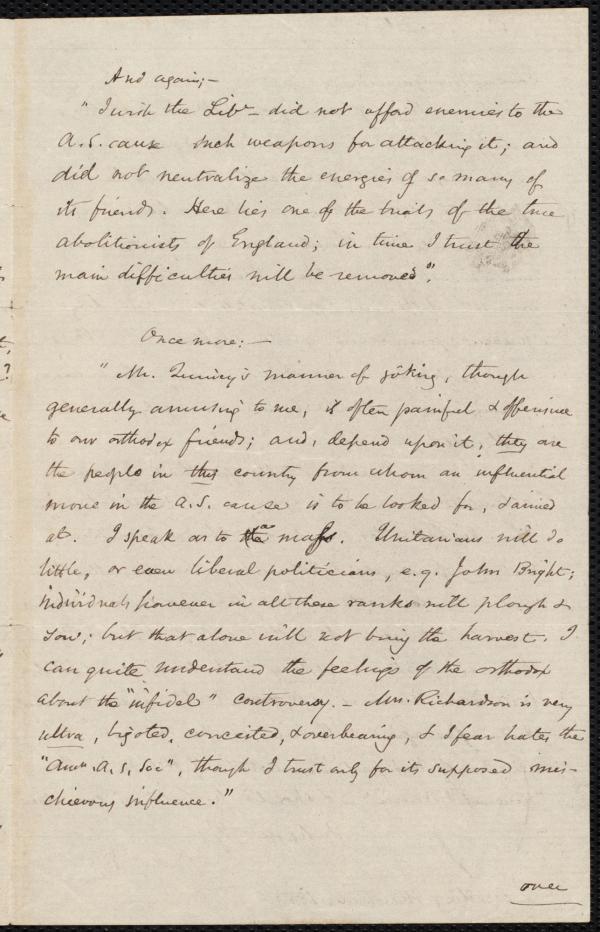 And again;—
"I wish the Libr — did not afford enemies to the
A. S. cause such weapons for attacking it; and
did not neutralize the energies of so many of
its friends. Here lies one of the trials of the true
abolitionists of England; in time I trust the
main difficulties will be removed".
Once more:—
"Mr. Quincy's manner of joking, though
generally amusing to me, is often painful & offensive
to our orthodox friends; and, depend upon it, they are
the people in this country from whom an influential
move in the A. S. cause is to be looked for, & aimed
at. I speak as to a mass. Unitarians will do
little, or even liberal politicians, e.g. John Bright;
individuals however in all these ranks will plough &
sow; but that alone will not bring the harvest. I
can quite understand the feelings of the orthodox
about the "infidel" controversy. — Mrs. Richardson is very
ultra, bigoted, conceited, & overbearing, & I fear hates the
"Amn. A. S. Soc", though I trust only for its supposed mis-
chievous influence."
over